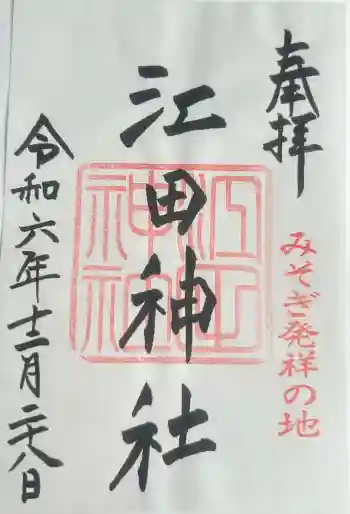 奉拝
みそぎ発祥の地
江田神社
江田神社
令和六年十二月二十八日